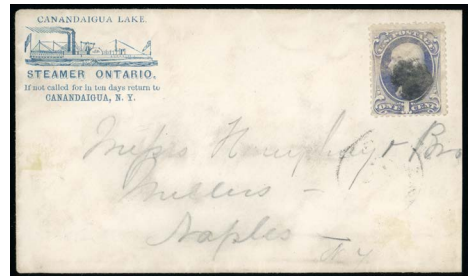 CANANDAIGUA LAKE.
STEAMER ONTARIO.
If not called for in ten days return to
CANANDAIGUA, N. Y.
ONE CENT
Messrs Humphrey & Bro
Millers –
Naples –
N.Y.